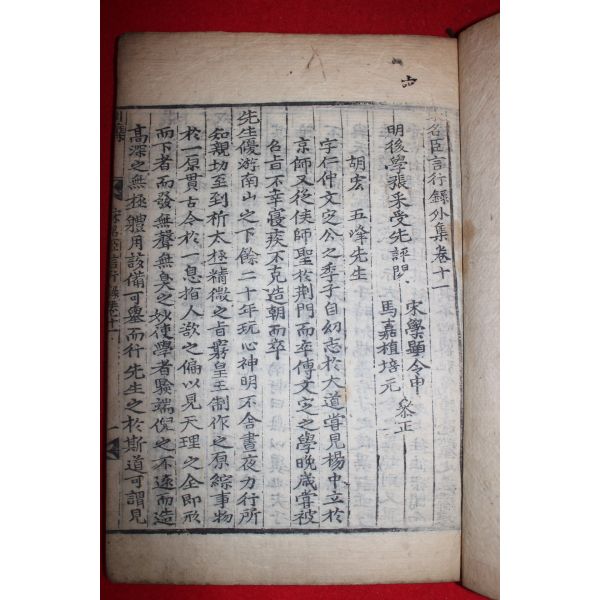 宋名臣言行錄外集卷十一
明後學張采受先評閱
宋學顯令申
馬嘉植培元
參正
胡宏　五峰先生
字仁仲文定公之季子自幼志於大道嘗見楊中立於
京師又從侯師聖於荆門而卒傳文定之學晚歲嘗被
召旨不幸寢疾不克造朝而卒
先生優游南山之下餘二十年玩心神明不舍晝夜力行所
知親切至到析太極精微之旨窮皇王制作之原綜事物
於一原貫古今於一息指人欲之偏以見天理之全即形
而下者而發無聲無臭之妙使學者驗端倪之不遠而造
高深之無極體用該備可舉而行先生之於斯道可謂見
宋名臣言行錄卷十一
一